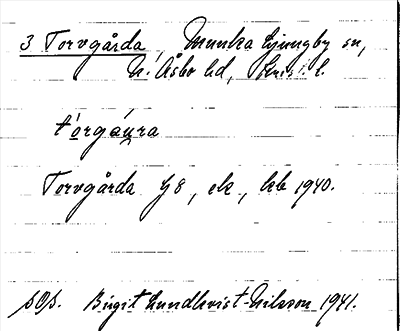 3 Torvgårda, Munka Ljungby sn,
N. Åsbo hd, Krist. l.
tórgáu̯ra
Torvgårda G8, ek, kb 1940.
SOS. Birgit Lundkvist-Nilsson 1941.